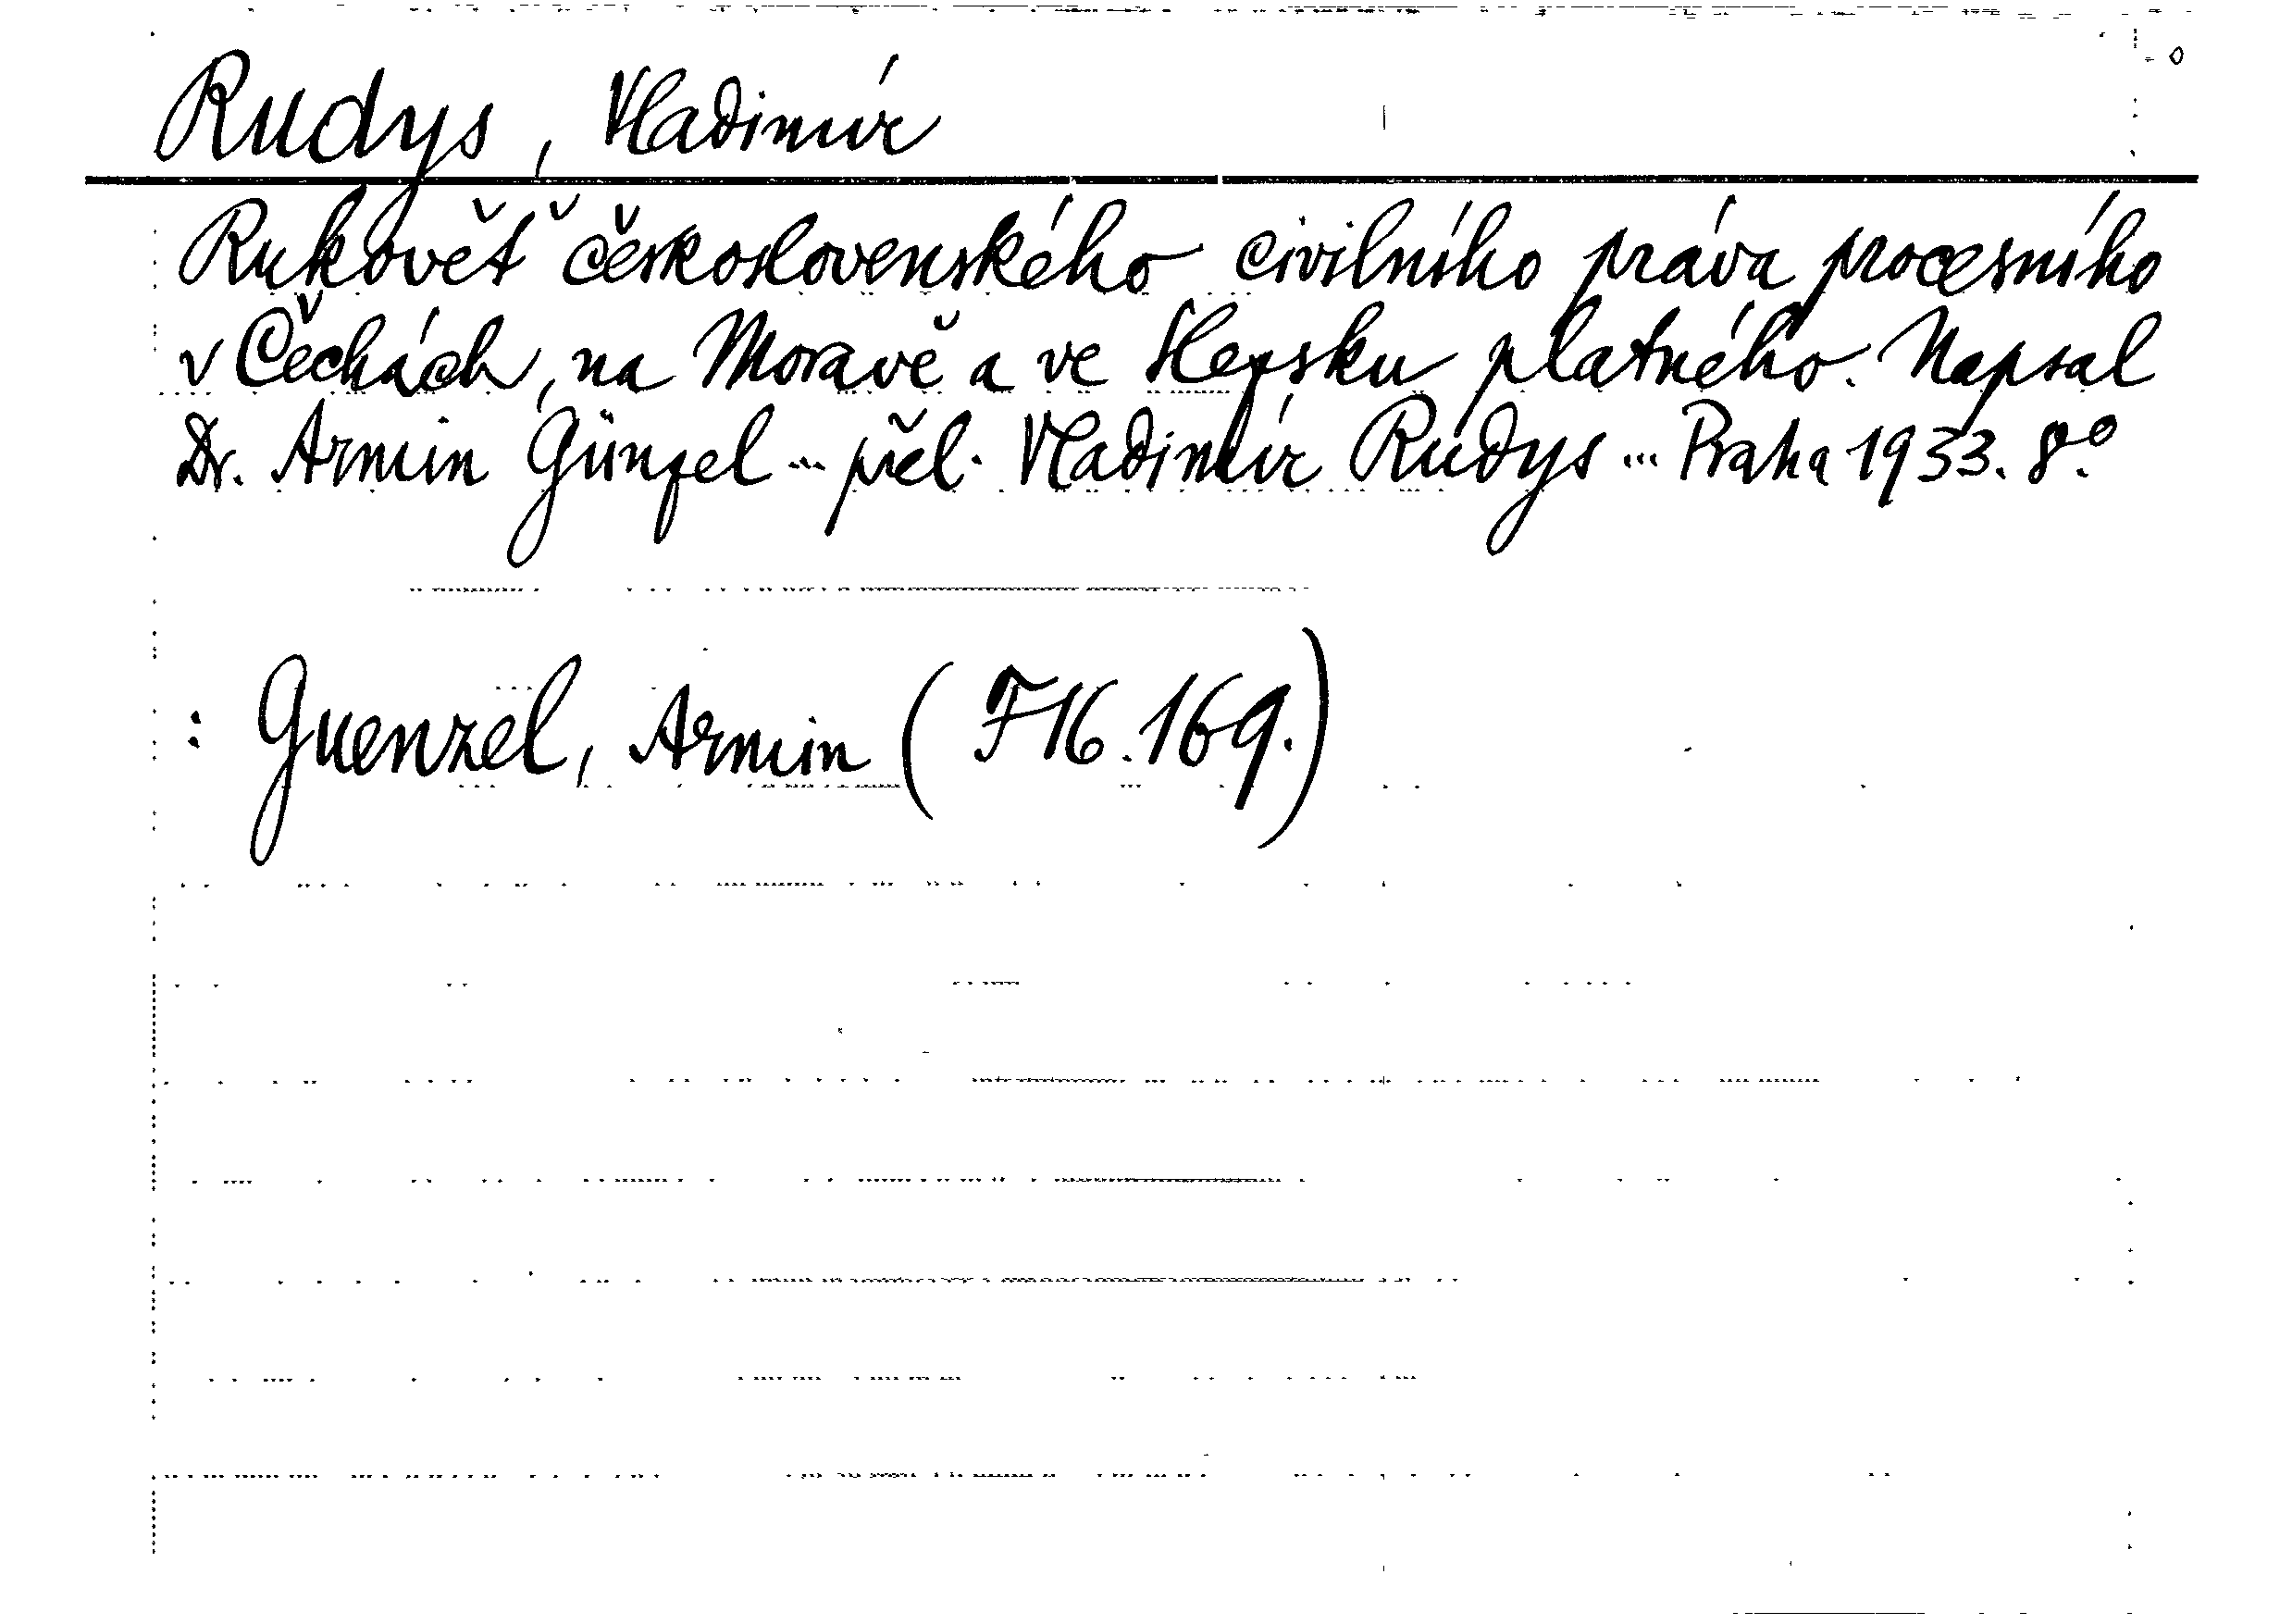 Rudys, Vladimír
Rukověť československého civilního práva procesního
v Čechách, na Moravě a ve Slezsku platného. Napsal
Dr. Armin Günzel ... přel. Vladimír Rudys ... Praha 1933. 8º
: Guenzel, Armin (F16.169.)